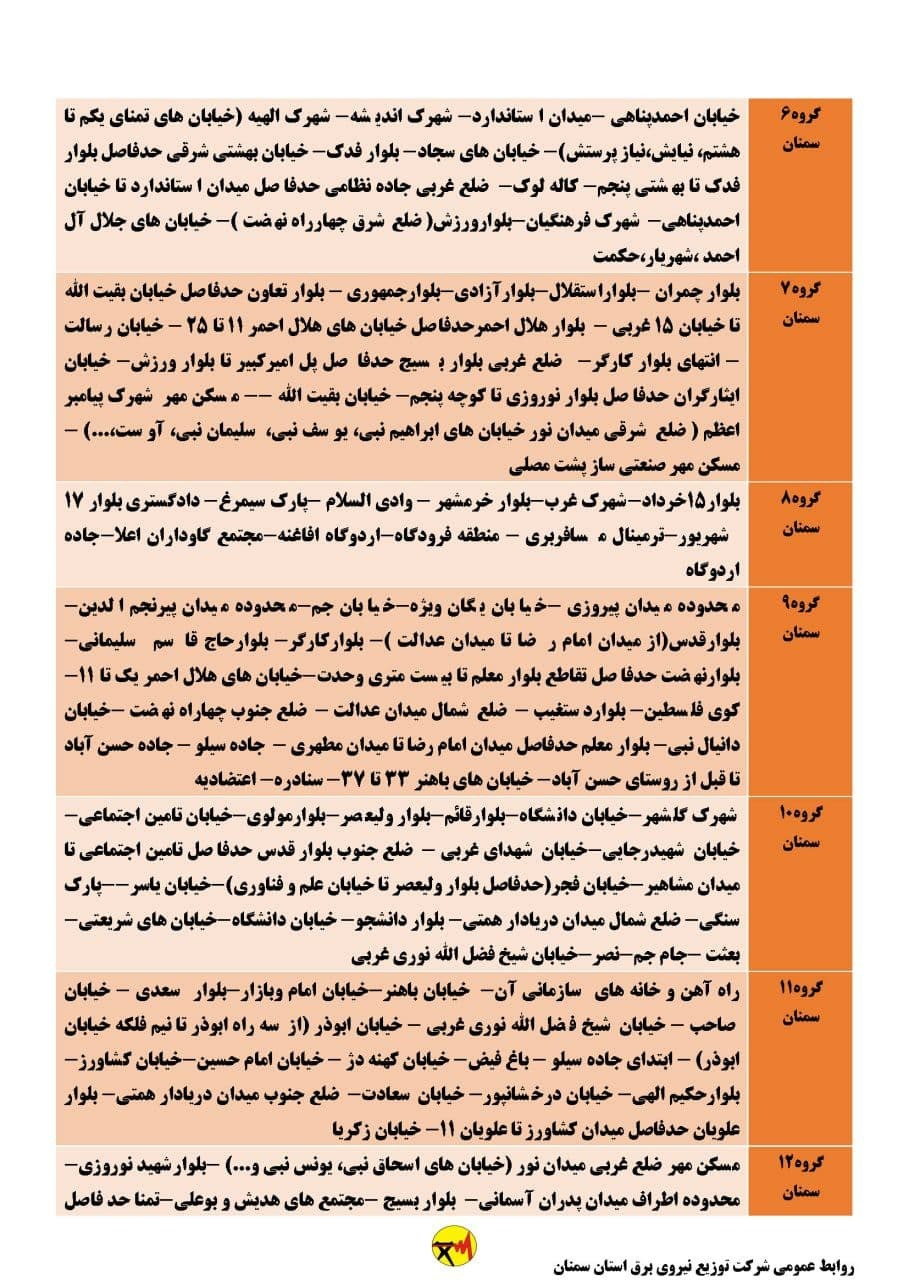 گروه۶
سمنان
خیابان احمدپناهی –میدان ا ستاندارد– شهرک اندیشه– شهرک الهیه (خیابان های تمنای یکم تا
هشتم، نیایش،نیاز پرستش)– خیابان های سجاد– بلوار فدک– خیابان بهشتی شرقی حدفاصل بلوار
فدک تا بهشتی پنجم– کاله لوک– ضلع غربی جاده نظامی حدفاصل میدان ا ستاندارد تا خیابان
احمدپناهی– شهرک فرهنگیان–بلوارورزش( ضلع شرق چهارراه نهضت )– خیابان های جلال آل
احمد ،شهریار،حکمت
گروه۷
سمنان
بلوار چمران –بلواراستقلال–بلوارآزادی–بلوارجمهوری – بلوار تعاون حدفاصل خیابان بقیت الله
تا خیابان ۱۵ غربی – بلوار هلال احمرحدفاصل خیابان های هلال احمر ۱۱ تا ۲۵ – خیابان رسالت
– انتهای بلوار کارگر– ضلع غربی بلوار بسیج حدفاصل پل امیرکبیر تا بلوار ورزش– خیابان
ایثارگران حدفاصل بلوار نوروزی تا کوچه پنجم– خیابان بقیت الله –– مسکن مهر شهرک پیامبر
اعظم ( ضلع شرقی میدان نور خیابان های ابراهیم نبی، یوسف نبی، سلیمان نبی، آوست،...) –
مسکن مهر صنعتی ساز پشت مصلی
گروه۸
سمنان
بلوار۱۵خرداد–شهرک غرب–بلوار خرمشهر – وادی السلام –پارک سیمرغ– دادگستری بلوار ۱۷
شهریور–ترمینال مسافربری – منطقه فرودگاه–اردوگاه افاغنه–مجتمع گاوداران اعلا–جاده
اردوگاه
گروه۹
سمنان
محدوده میدان پیروزی –خیابان یگان ویژه–خیابان جم–محدوده میدان پیرنجم الدین–
بلوارقدس(از میدان امام رضا تا میدان عدالت )– بلوارکارگر– بلوارحاج قاسم سلیمانی–
بلوارنهضت حدفاصل تقاطع بلوار معلم تا بیست متری وحدت–خیابان های هلال احمر یک تا ۱۱–
کوی فلسطین– بلوارد ستغیب – ضلع شمال میدان عدالت – ضلع جنوب چهاراه نهضت –خیابان
دانیال نبی– بلوار معلم حدفاصل میدان امام رضا تا میدان مطهری – جاده سیلو – جاده حسن آباد
تا قبل از روستای حسن آباد– خیابان های باهنر ۳۳ تا ۳۷– سنادره– اعتضادیه
گروه۱۰
سمنان
شهرک گلشهر–خیابان دانشگاه–بلوارقائم–بلوار ولیعصر–بلوارمولوی–خیابان تامین اجتماعی–
خیابان شهیدرجایی–خیابان شهدای غربی – ضلع جنوب بلوار قدس حدفاصل تامین اجتماعی تا
میدان مشاهیر–خیابان فجر(حدفاصل بلوار ولیعصر تا خیابان علم و فناوری)–خیابان یاسر––پارک
سنگی– ضلع شمال میدان دریادار همتی– بلوار دانشجو– خیابان دانشگاه–خیابان های شریعتی–
بعثت –جام جم–نصر–خیابان شیخ فضل الله نوری غربی
گروه۱۱
سمنان
راه آهن و خانه های سازمانی آن– خیابان باهنر–خیابان امام وبازار–بلوار سعدی – خیابان
صاحب – خیابان شیخ فضل الله نوری غربی – خیابان ابوذر (از سه راه ابوذر تا نیم فلکه خیابان
ابوذر) – ابتدای جاده سیلو – باغ فیض– خیابان کهنه دژ – خیابان امام حسین–خیابان کشاورز–
بلوارحکیم الهی– خیابان درخشانپور–خیابان سعادت– ضلع جنوب میدان دریادار همتی– بلوار
علویان حدفاصل میدان کشاورز تا علویان ۱۱– خیابان زکریا
گروه۱۲
سمنان
مسکن مهر ضلع غربی میدان نور (خیابان های اسحاق نبی، یونس نبی و...) –بلوارشهید نوروزی–
محدوده اطراف میدان پدران آسمانی– بلوار بسیج –مجتمع های هدیش و بوعلی–تمنا حد فاصل
روابط عمومی شرکت توزیع نیروی برق استان سمنان